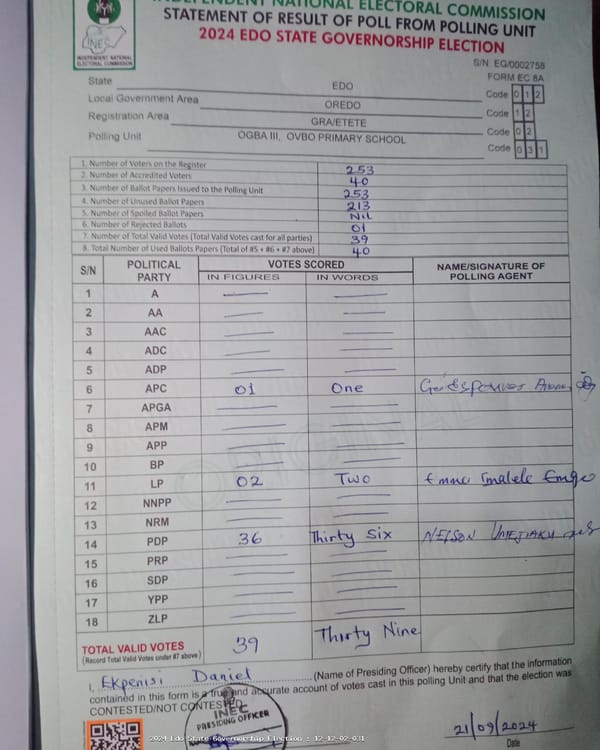 INDEPENDENT NATIONAL ELECTORAL COMMISSION
STATEMENT OF RESULT OF POLL FROM POLLING UNIT
2024 EDO STATE GOVERNORSHIP ELECTION
INEC
INDEPENDENT NATIONAL
ELECTORAL COMMISSION
S/N EG/0002758
FORM EC 8A
State EDO Code 0 1 2
Local Government Area OREDO Code 1 2
Registration Area GRA/ETETE Code 0 2
Polling Unit OGBA III, OVBO PRIMARY SCHOOL Code 0 3 1
1. Number of Voters on the Register 253
2. Number of Accredited Voters 40
3. Number of Ballot Papers Issued to the Polling Unit 253
4. Number of Unused Ballot Papers 213
5. Number of Spoiled Ballot Papers Nil
6. Number of Rejected Ballots 01
7. Number of Total Valid Votes (Total Valid Votes cast for all parties) 39
8. Total Number of Used Ballots Papers (Total of #5 + #6 + #7 above) 40
S/N POLITICAL PARTY VOTES SCORED NAME/SIGNATURE OF POLLING AGENT
IN FIGURES IN WORDS
1 A
2 AA
3 AAC
4 ADC
5 ADP
6 APC 01 One
7 APGA
8 APM
9 APP
10 BP
11 LP 02 Two
12 NNPP
13 NRM
14 PDP 36 Thirty Six NELSON
15 PRP
16 SDP
17 YPP
18 ZLP
TOTAL VALID VOTES 39 Thirty Nine
(Record Total Valid Votes under #7 above)
I, Ekpenisi Daniel (Name of Presiding Officer) hereby certify that the information
contained in this form is a true and accurate account of votes cast in this polling Unit and that the election was
CONTESTED/NOT CONTESTED
INEC
PRESIDING OFFICER
21/09/2024
Date
2024 Edo State Governorship Election : 12-12-02-031